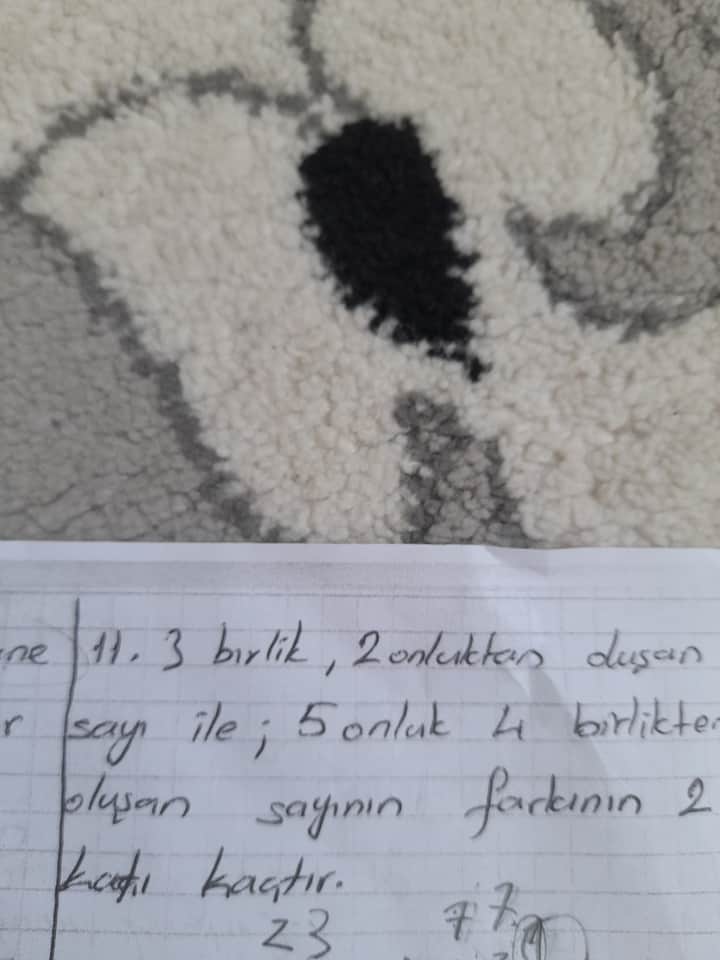 ne 11. 3 birlik, 2 onluktan duşan
r sayı ile; 5 onluk 4 birlikte
oluşan sayının farkının 2
katı kaçtır.
23 77